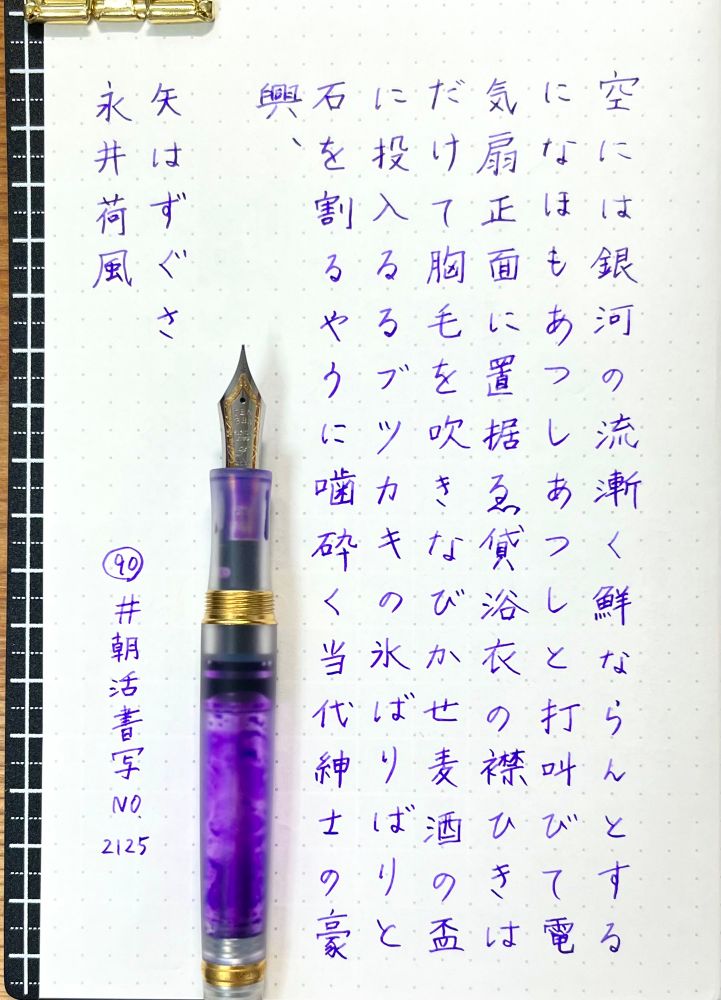 空には銀河の流漸く鮮ならんとする
になほもあつしあつしと打叫びて電
気扇正面に置据ゑ貸浴衣の襟ひきは
だけて胸毛を吹きなびかせ麦酒の盃
に投入るるブツカキの氷ばりばりと
石を割るやうに噛砕く当代紳士の豪
興、
矢はずぐさ
永井荷風
90
#朝活書写
NO.
2125